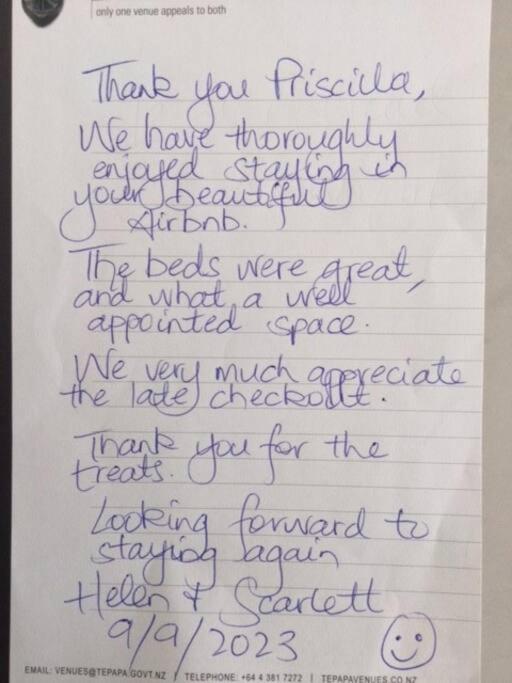 only one venue appeals to both
Thank you Priscilla,
We have thoroughly
enjoyed staying in
your beautiful
Airbnb.
The beds were great,
and what a well
appointed space.
We very much appreciate
the late checkout.
Thank you for the
treats.
Looking forward to
staying again
Helen & Scarlett
9/9/2023
EMAIL: VENUES@TEPAPA.GOVT.NZ | TELEPHONE: +64 4 381 7272 | TEPAPAVENUES.CO.NZ